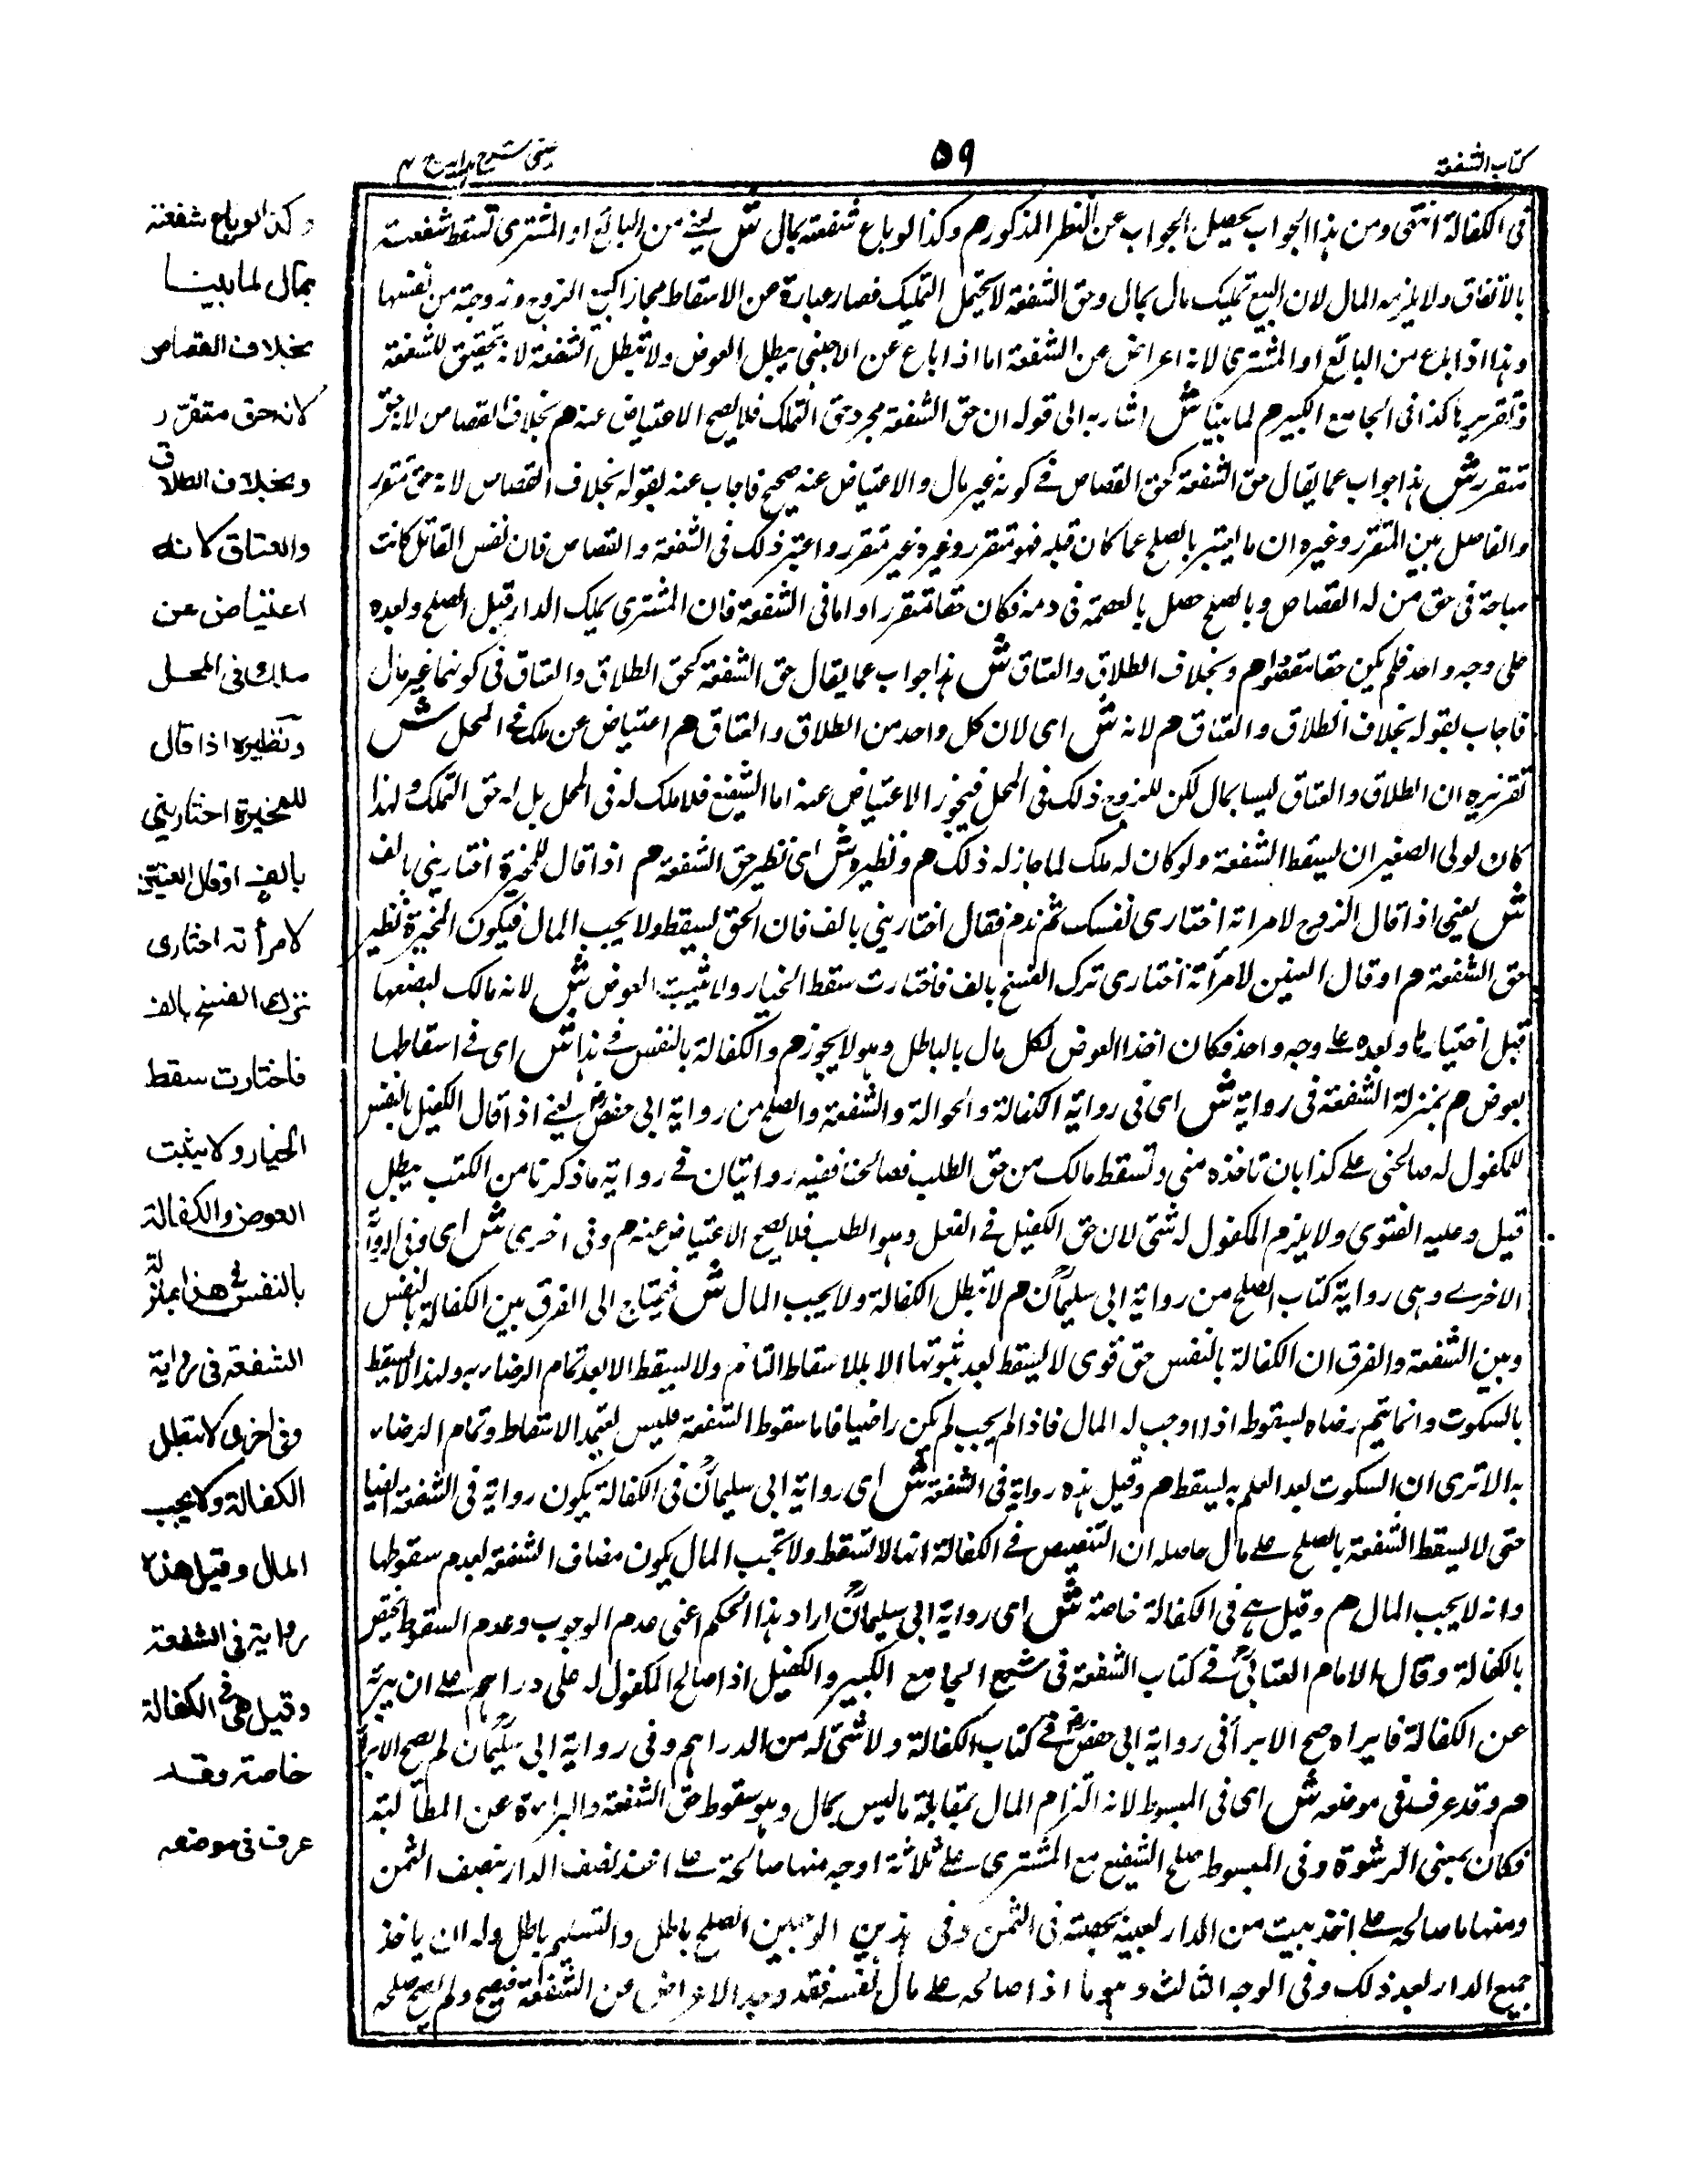 كتاب الشفعة
٥٩
عيني شرح هداية ج ٤
في الكفالة انتهى ومن هذا الجواب يحصل الجواب عن النظر المذكور م وكذا لو باع شفعته بمال ش يعني من البائع او المشترى تسقط شفعته
بالاتفاق ولا يلزمه المال لان البيع تمليك مال بمال وحق الشفعة لا يحتمل التمليك فصار عبارة عن الاسقاط مجازا كبيع الزوج زوجته من نفسها
وهذا اذا باع من البائع او المشترى لانه اعراض عن الشفعة اما اذا باع عن الاجنبى يبطل العوض ولا تبطل الشفعة لانه تحقيق للشفعة
وتقريرها كذا فى الجامع الكبير م لما بينا ش اشار به الى قوله ان حق الشفعة مجرد حق التملك فلا يصح الاعتياض عنه م بخلاف القصاص لانه حق
متقرر ش هذا جواب عما يقال حق الشفعة كحق القصاص فى كونه غير مال والاعتياض عنه صحيح فاجاب عنه بقوله بخلاف القصاص لانه حق متقرر
والفاصل بين المتقرر وغيره ان ما يتغير بالصلح عما كان قبله فهو متقرر وغيره غير متقرر واعتبر ذلك فى الشفعة والقصاص فان نفس القاتل كانت
مباحة فى حق من له القصاص وبالصلح حصل بالعصمة فى دمه فكان حقا متقررا واما فى الشفعة فان المشترى يملك الدار قبل الصلح وبعده
على وجه واحد فلم يكن حقا متقررا م وبخلاف الطلاق والعتاق ش هذا جواب عما يقال حق الشفعة كحق الطلاق والعتاق فى كونهما غير مال
فاجاب بقوله بخلاف الطلاق والعتاق م لانه ش اى لان كل واحد من الطلاق والعتاق م اعتياض عن ملك فى المحل ش
تقريره ان الطلاق والعتاق ليسا بمال لكن للزوج ذلك فى المحل فيجوز الاعتياض عنه اما الشفيع فلا ملك له فى المحل بل له حق التملك ولهذا
كان لولى الصغير ان يسقط الشفعة ولو كان له ملك لما جاز له ذلك م ونظيره ش اى نظير حق الشفعة م اذا قال للمخيرة اختارينى بالف
ش يعنى اذا قال الزوج لامراته اختارى نفسك ثم ندم فقال اختارينى بالف فان الحق يسقط ولا يجب المال فيكون المخيرة نظير
حق الشفعة م او قال العنين لامرأته اختارى ترك الفسخ بالف فاختارت سقط الخيار ولا يثبت العوض ش لانه مالك لبضعها
قبل اختيارها وبعده على وجه واحد فكان اخذ العوض لكل مال بالباطل وهو لا يجوز م والكفالة بالنفس فى هذا ش اى فى اسقاطها
بعوض م بمنزلة الشفعة فى رواية ش اى فى رواية الكفالة والحوالة والشفعة والصلح من رواية ابى حفص يعنى اذا قال الكفيل بالنفس
للمكفول له صالحنى على كذا بان تاخذه منى وتسقط مالك من حق الطلب فصالحنا ففيه روايتان فى رواية ما ذكرنا من الكتب يبطل
قيل وعليه الفتوى ولا يلزم المكفول له شئ لان حق الكفيل فى الفعل وهو الطلب فلا يصح الاعتياض عنه م وفى اخرى ش اى وفى الرواية
الاخرى وهى رواية كتاب الصلح من رواية ابى سليمان م لا تبطل الكفالة ولا يجب المال ش فيحتاج الى الفرق بين الكفالة بالنفس
وبين الشفعة والفرق ان الكفالة بالنفس حق قوى لا يسقط بعد ثبوتها الا بالاسقاط التام ولا يسقط الا بعد تمام الرضاء به ولهذا لا يسقط
بالسكوت وانما يتم رضاه بسقوطه اذا وجب له المال فاذا لم يجب لم يكن راضيا فاما سقوط الشفعة فليس يعتمد الاسقاط وتمام الرضاء
به الا ترى ان السكوت بعد العلم به يسقط م وقيل هذه رواية فى الشفعة ش اى رواية ابى سليمان فى الكفالة يكون رواية فى الشفعة ايضا
حتى لا يسقط الشفعة بالصلح على مال حاصله ان التنصيص فى الكفالة انها لا تسقط ولا تجب المال يكون مضاف الشفعة لعدم سقوطها
وانه لا يجب المال م وقيل هى فى الكفالة خاصة ش اى رواية ابى سليمان اراد بهذا الحكم اعنى عدم الوجوب وعدم السقوط يختص
بالكفالة وقال الامام العتابى فى كتاب الشفعة فى شرح الجامع الكبير والكفيل اذا صالح المكفول له على دراهم على ان يبريه
عن الكفالة فابراه صح الابرأ فى رواية ابى حفص فى كتاب الكفالة ولا شئ له من الدراهم وفى رواية ابى سليمان لم يصح الابرأ
م وقد عرف فى موضعه ش اى فى المبسوط لانه التزام المال بمقابلة ما ليس بمال وهو سقوط حق الشفعة والبراءة عن المطالبة
فكان بمعنى الرشوة وفى المبسوط صلح الشفيع مع المشترى على ثلاثة اوجه منها صالحة على اخذ نصف الدار بنصف الثمن
ومنها ما صالحه على اخذ بيت من الدار بعينه بحصته فى الثمن وفى هذين الوجهين الصلح باطل والتسليم باطل وله ان ياخذ
جميع الدار بعد ذلك وفى الوجه الثالث وهو ما اذا صالحه على مال نفسه فقد وجد الاعراض عن الشفعة فيصح ولم يصح صلحه
وكذا لو باع شفعته
بمال لما بينا
بخلاف القصاص
لانه حق متقرر
وبخلاف الطلاق
والعتاق لانه
اعتياض عن
ملك فى المحل
ونظيره اذا قال
للمخيرة اختارينى
بالف او قال العنين
لامرأته اختارى
ترك الفسخ بالف
فاختارت سقط
الخيار ولا يثبت
العوض والكفالة
بالنفس فى هذا بمنزلة
الشفعة فى رواية
وفى اخرى لا تبطل
الكفالة ولا يجب
المال وقيل هذه
رواية فى الشفعة
وقيل هى فى الكفالة
خاصة وقد
عرف فى موضعه